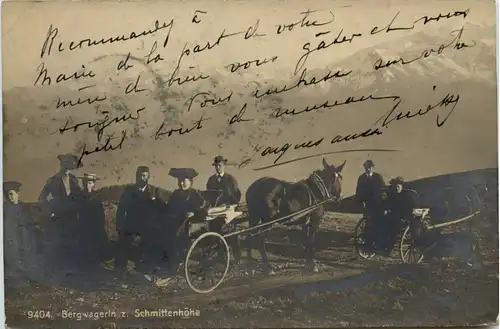 Recommandez à
Marie de la part de votre
mère de bien vous gâter et vous
soigner. Vous embrasse sur votre
petit bout de museau
Jacques aussi
9404. Bergwagerln z. Schmittenhöhe